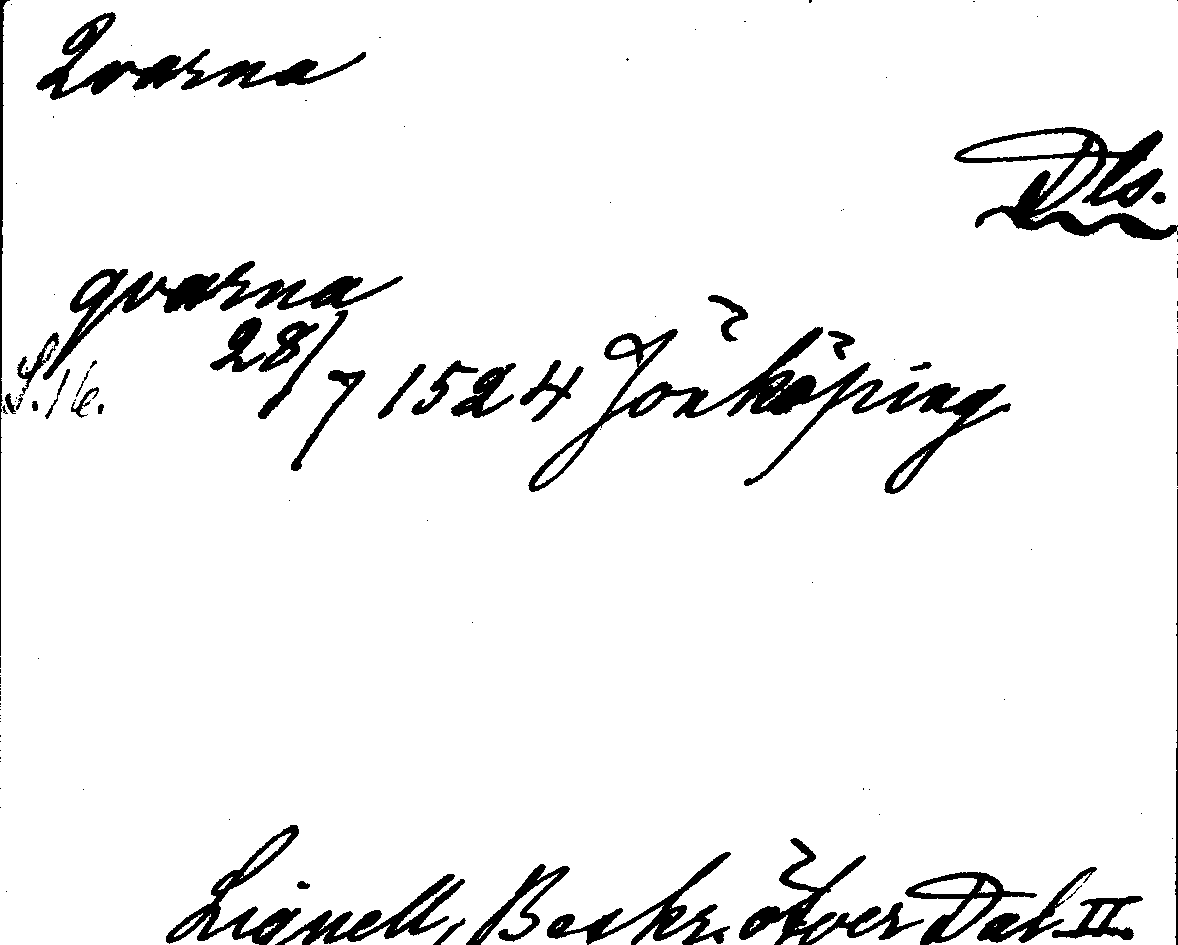 Qvarna
Dls.
qvarna
S. 16. 28/7 1524 Jönköping
Lignell, Beskr. öfver Dal II.